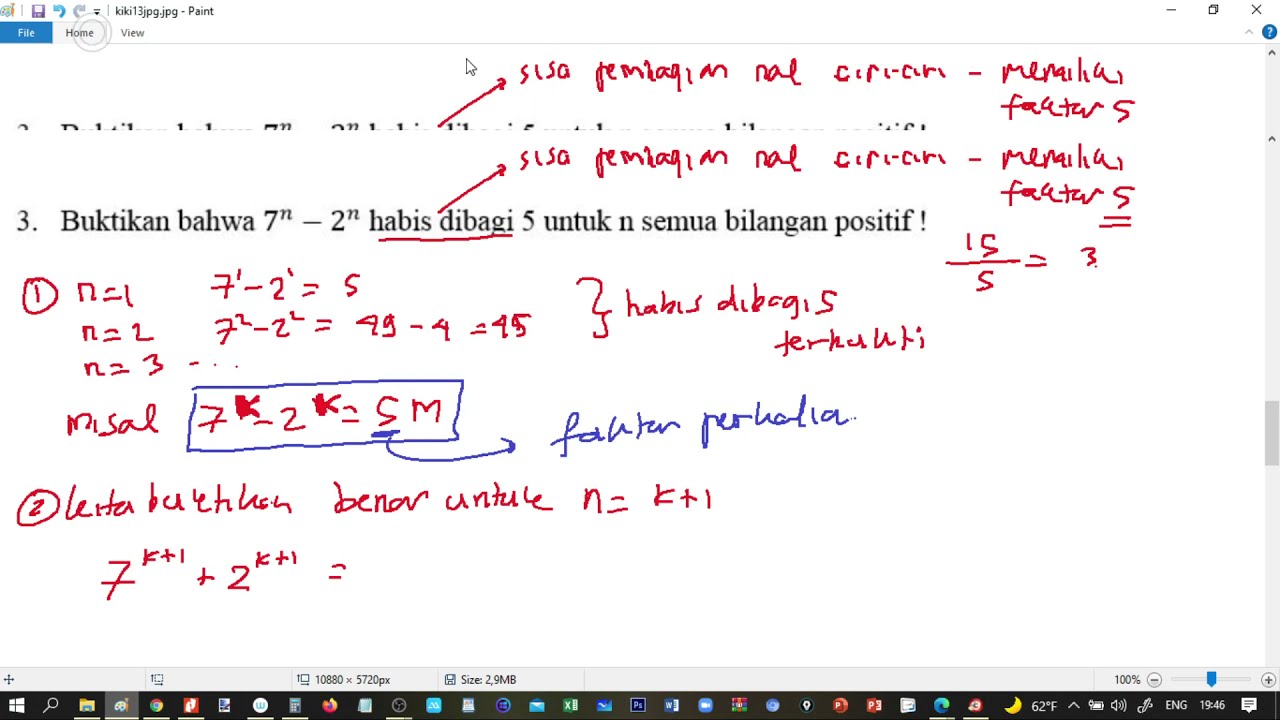 kiki13jpg.jpg - Paint
File Home View
sisa pembagian nol ciri-ciri - memiliki
faktor 5
3. Buktikan bahwa 7ⁿ − 2ⁿ habis dibagi 5 untuk n semua bilangan positif !
sisa pembagian nol ciri-ciri - memiliki
faktor 5
3. Buktikan bahwa 7ⁿ − 2ⁿ habis dibagi 5 untuk n semua bilangan positif !
15/5 = 3
① n=1 7¹-2¹ = 5
n=2 7²-2² = 49-4 =45
n=3 ---
} habis dibagi 5
terbukti
misal 7ᵏ-2ᵏ = 5M
faktor perkalia
② kita buktikan benar untuk n= k+1
7ᵏ⁺¹ + 2ᵏ⁺¹ =
10880 × 5720px Size: 2,9MB 100%
62°F ENG 19:46